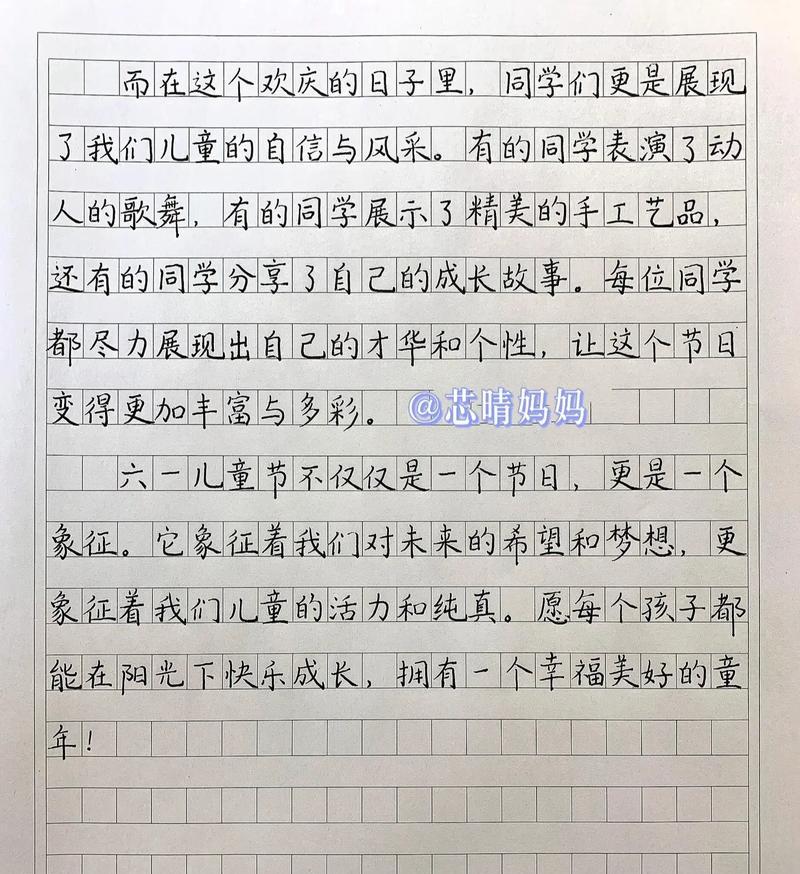 而在这个欢庆的日子里，同学们更是展现
了我们儿童的自信与风采。有的同学表演了动
人的歌舞，有的同学展示了精美的手工艺品，
还有的同学分享了自己的成长故事。每位同学
都尽力展现出自己的才华和个性，让这个节日
变得更加丰富与多彩。
@芯晴妈妈
六一儿童节不仅仅是一个节日，更是一个
象征。它象征着我们对未来的希望和梦想，更
象征着我们儿童的活力和纯真。愿每个孩子都
能在阳光下快乐成长，拥有一个幸福美好的童
年！